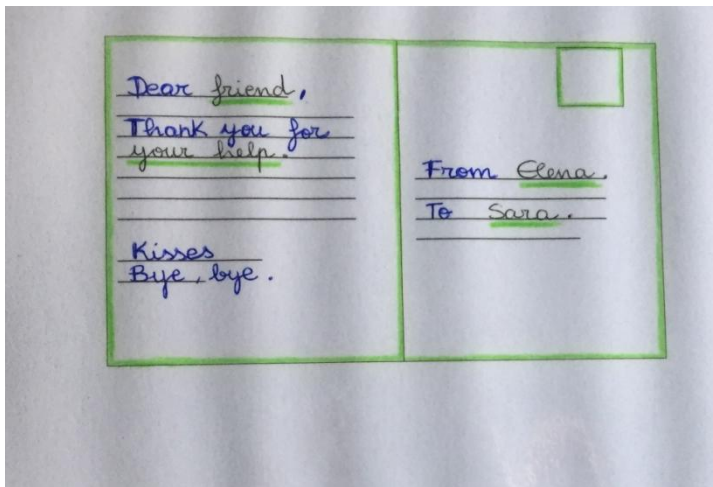 Dear friend,
Thank you for
your help.
Kisses
Bye, bye.
From Elena.
To Sara.